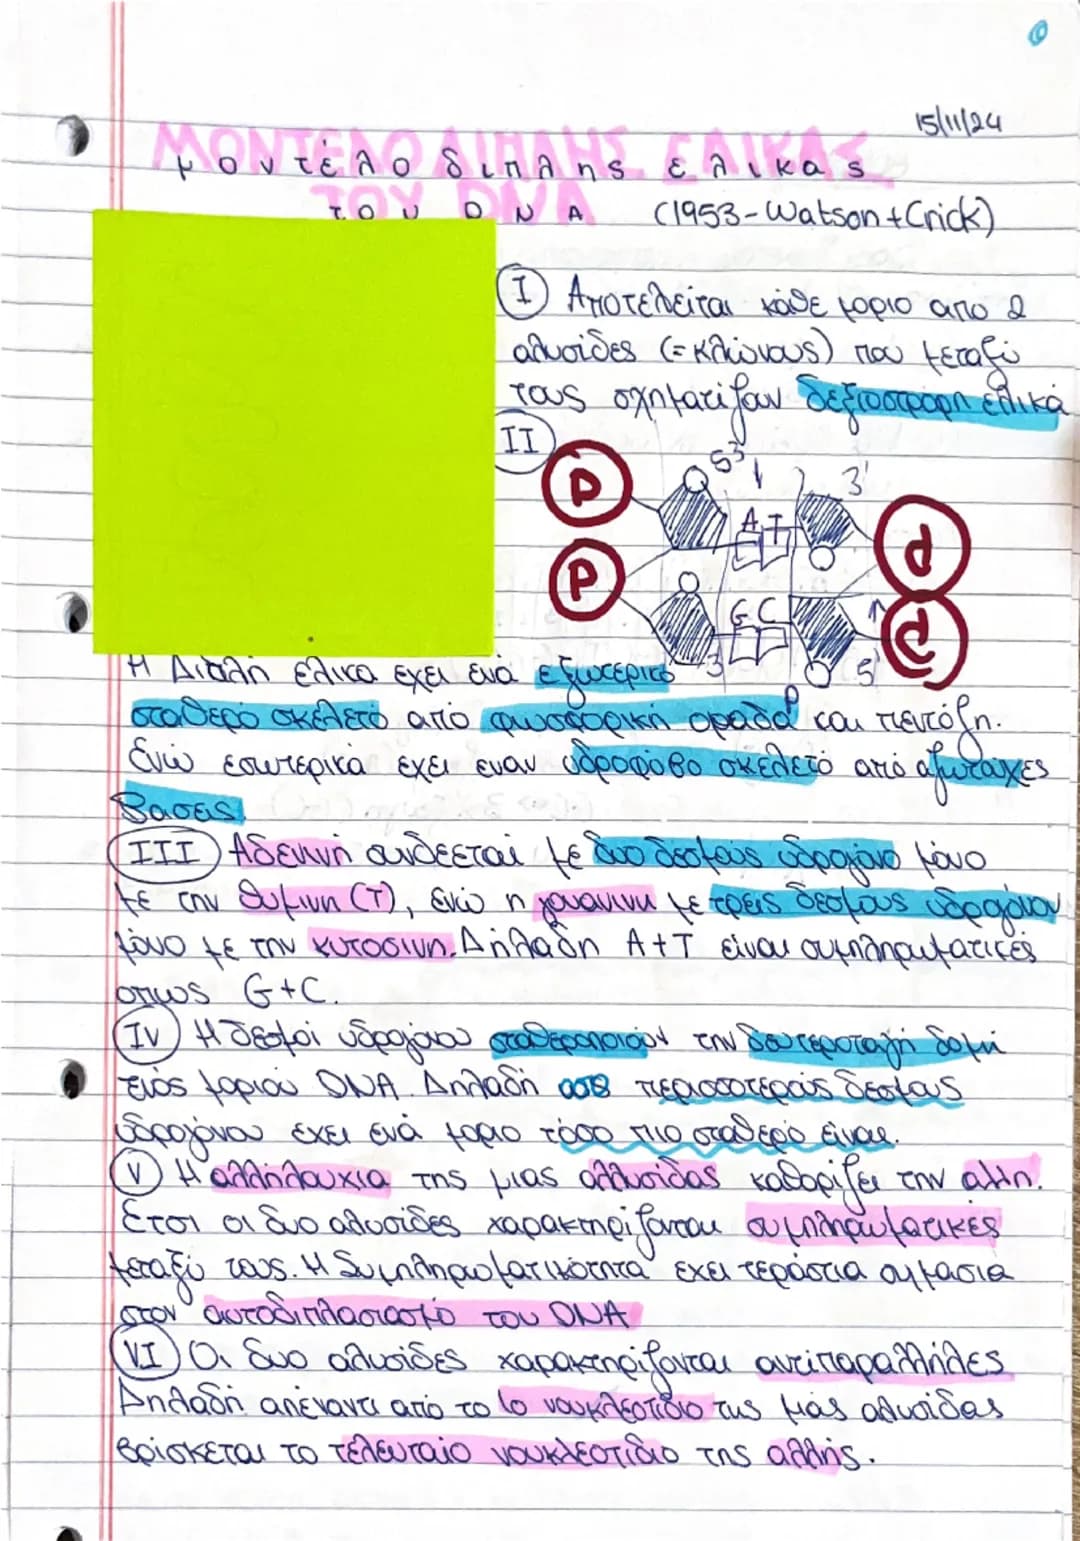 15/11/24
ΜΟΝΤΕΛΟ ΔΙΠΛΗΣ ΕΛΙΚΑΣ
μοντέλο διπλης ελικας
ΤΟΥ DNA
του DNA (1953-Watson+Crick)
I Αποτελείται κάθε μοριο απο 2
αλυσίδες (=κλώνους) που μεταξύ
τους σχηματίζουν δεξιοστροφη ελικά
II
5' 3'
P A T P
P G C P
3' 5'
Η Διπλή ελικα εχει ενά εξωτερικό
σταθερό σκελετό από φωσφορική ομαδα και πεντόζη.
Ενώ εσωτερικά εχει εναν υδροφόβο σκελετό από αζωτούχες
Βασεις.
III Αδενινη συνδεεται με δυο δεσμούς υδρογόνο μόνο
με την θυμινη (Τ), ενώ η γουανινη με τρεις δεσμους υδρογόνου
μόνο με την κυτοσινη. Δηλαδη Α+Τ είναι συμπληρωματικές
οπως G+C.
IV Η δεσμοί υδρογόνου σταθεροποιούν την δευτεροταγή δομή
ενός μοριου DNA. Δηλαδή οσο περισσοτερούς δεσμους
υδρογόνου εχει ενά μοριο τόσο πιο σταθερό είναι.
V Η αλληλουχια της μιας αλλυσίδας καθορίζει την αλλη.
Ετσι οι δυο αλυσίδες χαρακτηρίζονται συμπληρωματικές
μεταξύ τους. Η Συμπληρωματικότητα εχει τεράστια σημασια
στον αυτοδιπλασιασμό του DNA
VI Οι δυο αλυσίδες χαρακτηρίζονται αντιπαραλλήλες
Δηλαδή απέναντι από το 1ο νουκλεοτιδιο της μιάς αλυσίδας
βρίσκεται το τελευταίο νουκλεοτίδιο της αλλής.